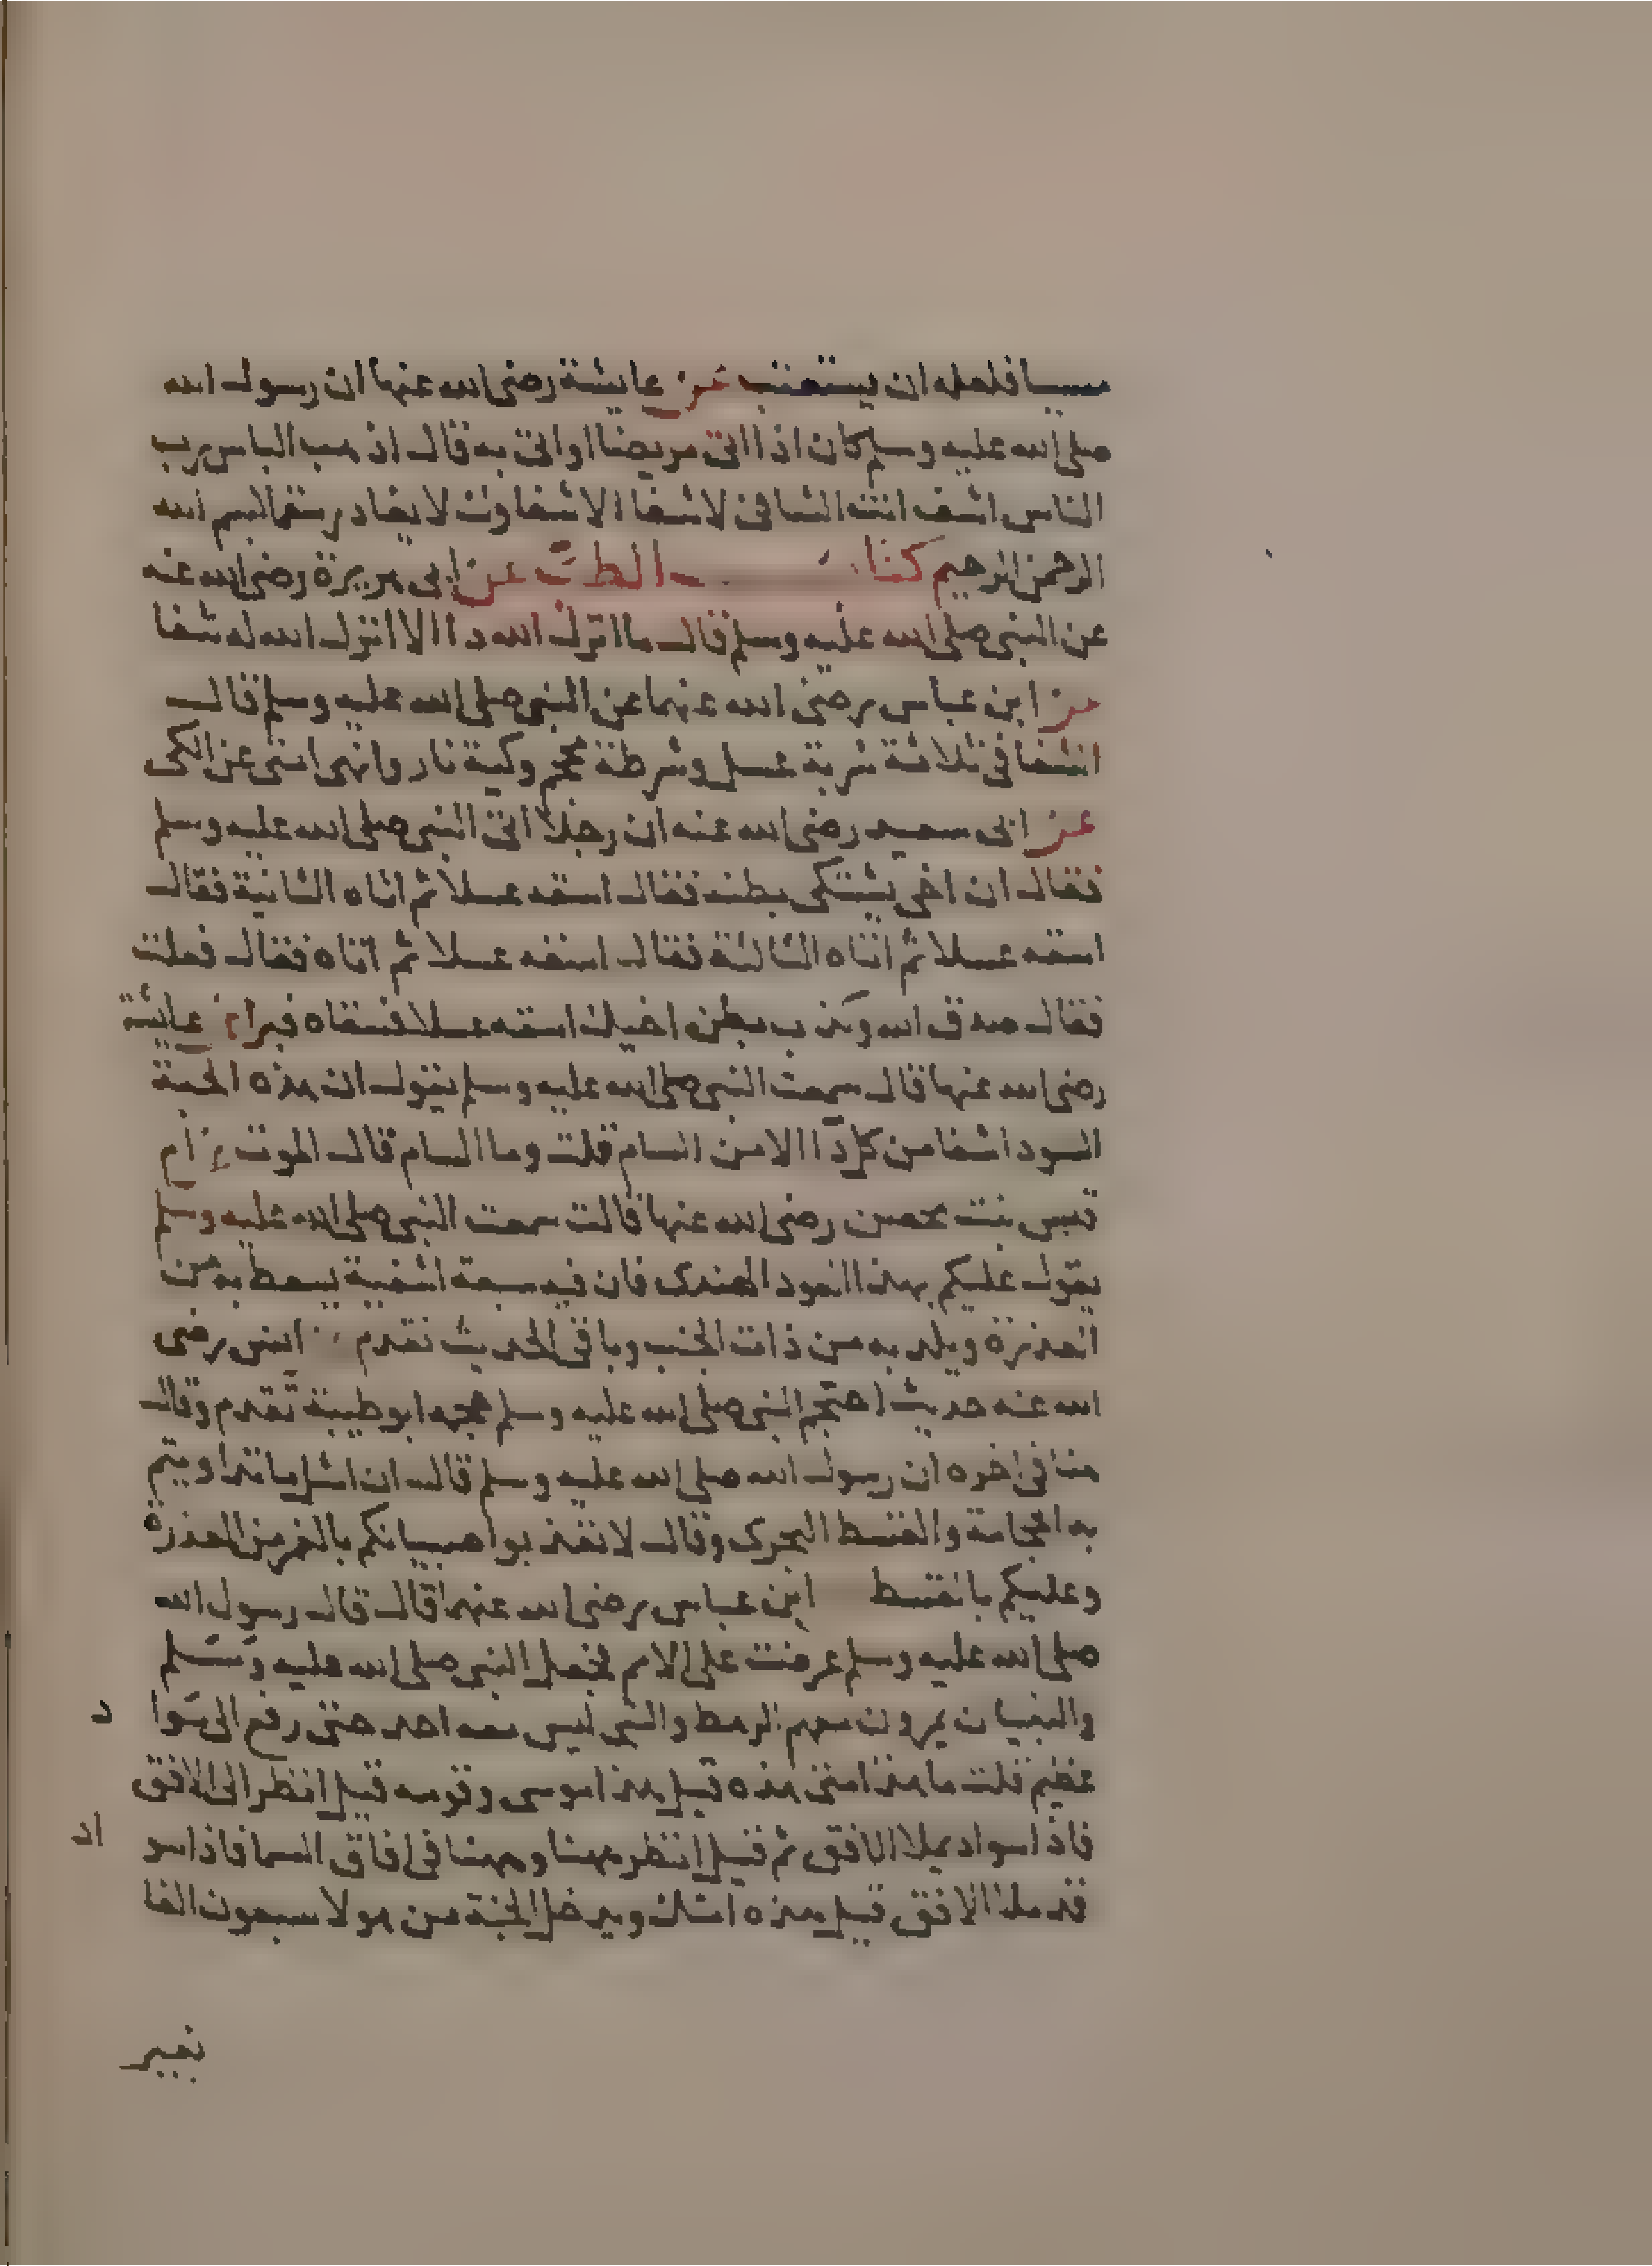 مسيا فلعله ان يستعتب عن عايشة رضى الله عنها ان رسول الله
صلى الله عليه وسلم كان اذا اتى مريضا او اتى به قال اذهب الباس رب
الناس اشف انت الشافى لا شفا الا شفاوك لا يغادر سقما بسم الله
الرحمن الرحيم كتاب الطب عن ابى هريرة رضى الله عنه
عن النبى صلى الله عليه وسلم قال ما انزل الله دا الا انزل الله له شفا
عن ابن عباس رضى الله عنهما عن النبى صلى الله عليه وسلم قال
الشفا فى ثلاثة شربة عسل وشرطة محجم وكية نار وانهى امتى عن الكى
عن ابى سعيد رضى الله عنه ان رجلا اتى النبى صلى الله عليه وسلم
فقال ان اخى يشتكى بطنه فقال اسقه عسلا ثم اتاه الثانية فقال
اسقه عسلا ثم اتاه الثالثة فقال اسقه عسلا ثم اتاه فقال فعلت
فقال صدق الله وكذب بطن اخيك اسقه عسلا فسقاه فبرا عن عايشة
رضى الله عنها قال سمعت النبى صلى الله عليه وسلم يقول ان هذه الحبة
السودا شفا من كل دا الا من السام قلت وما السام قال الموت عن ام
قيس بنت محصن رضى الله عنها قالت سمعت النبى صلى الله عليه وسلم
يقول عليكم بهذا العود الهندى فان فيه سبعة اشفية يسعط به من
العذرة ويلد به من ذات الجنب وباقى الحديث تقدم انس رضى
الله عنه حديث احتجم النبى صلى الله عليه وسلم حجمه ابو طيبة تقدم وقال
هنا فى اخره ان رسول الله صلى الله عليه وسلم قال ان امثل ما تداويتم
به الحجامة والقسط البحرى وقال لا تعذبوا صبيانكم بالغمز من العذرة
وعليكم بالقسط ابن عباس رضى الله عنهما قال قال رسول الله
صلى الله عليه وسلم عرضت على الامم فجعل النبى صلى الله عليه وسلم
والنبيان يمرون معهم الرهط والنبى ليس معه احد حتى رفع الى سوا د
عظيم قلت ما هذا امتى هذه قيل هذا موسى وقومه قيل انظر الى الافق
فاذا سواد يملا الافق ثم قيل انظر ههنا وههنا فى افاق السما فاذا سو اد
قد ملا الافق قيل هذه امتك ويدخل الجنة من هولا سبعون الفا
بغير